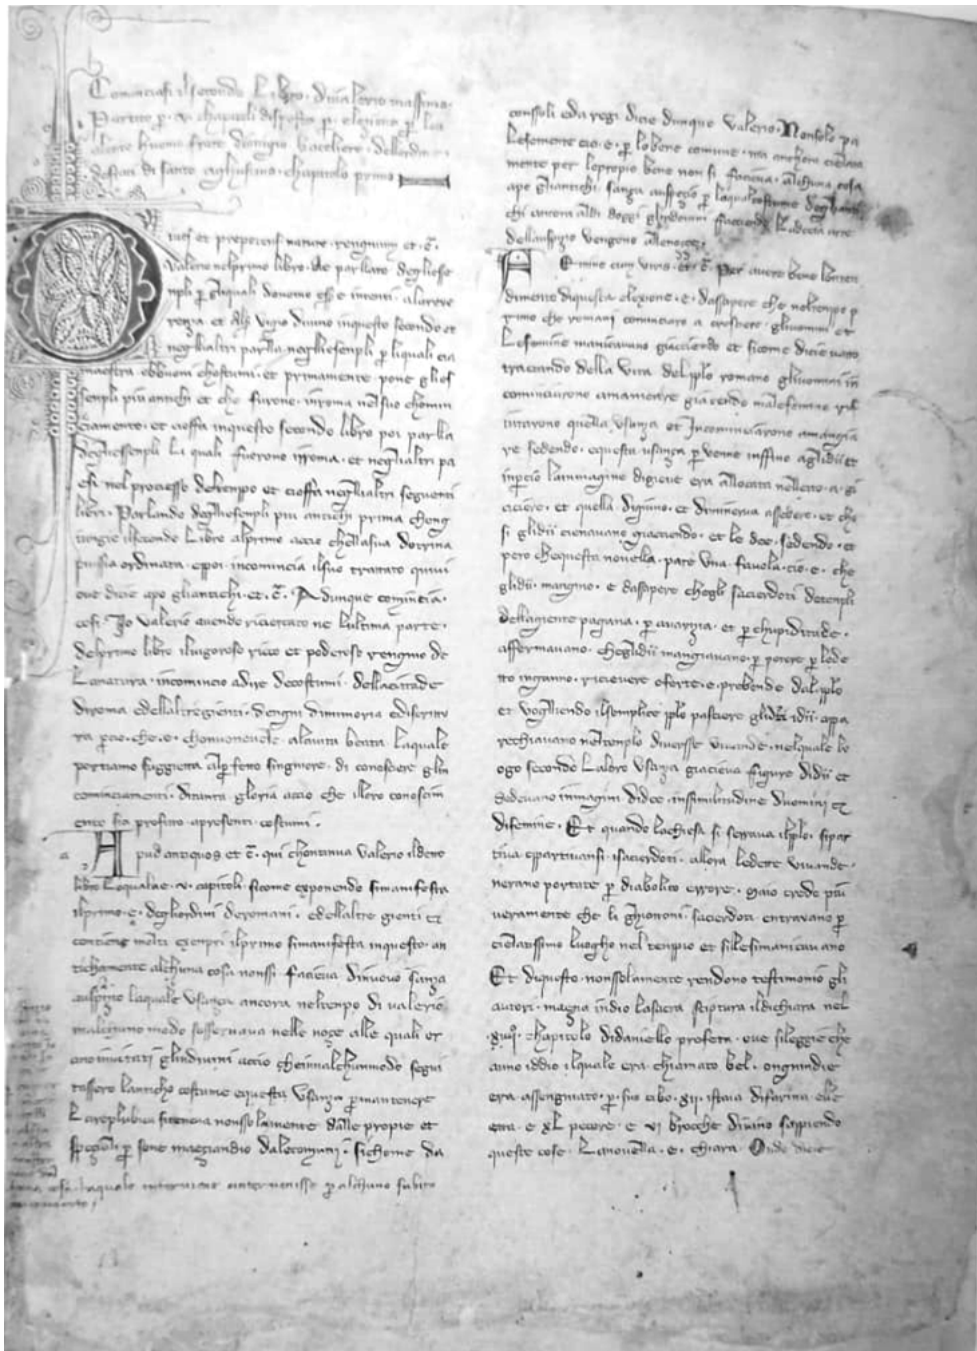 Cominciasi il secondo Libro di valerio massimo.
Partito p. v. chapitoli disposto p
frate dionigio bacciliere dellordine
de frati di santo aghustino chapitolo primo
Dives et prepotens nature rengnum et c.
Valerio nel primo libro a parllato degliese
npli p gliquali dovemo essere intenti alareve
renza et
neglialtri parlla negliesenpli p liquali cia
maestra abbuoni chostumi. et primamente pone glies
senpli piu antichi et che furono inroma nelsuo chomin
ciamento. et cioffa inquesto secondo libro poi parlla
degliessenpli Li quali fuerono irroma. et neglialtri pa
esi nel processo deltenpo et cioffa neglialtri seguenti
libri. Parlando degliesenpli piu antichi prima chong
iungie ilsecondo Libro alprimo accio chellasua dottrina
piu sia ordinata. eppoi incomincia ilsuo trattato quivi
ove dicie apo gliantichi. et. c. Adunque comincia.
cosi. Io valerio avendo ricierchato ne lultima parte.
delprimo libro ilvigoroso riccho et poderoso rengnio de
Lanatura. incomincio adire decostumi. dellacittade
diroma edellaltregienti. dengni dimimoria
ra p cio. che. e. chonvenevole. alavita beata. laquale
portiamo suggietta singniore. di conosciere gl in
cominciamenti. ditanta gloria accio che illoro conoscim
ento sia profitto apresenti costumi.
Apud antiquos et c. qui chontinua valerio ildetto
libro Loquale a. v. capitoli. sicome exponendo simanifesta
ilprimo. e. degliordini deromani. edellaltre gienti et
contiene molti exenpri ilprimo simanifesta inquesto. an
tichamente alchuna cosa nonssi. facieva dinuovo sanza
auspizio laquale usanza ancora neltenpo di valerio
malchuno modo sosservava nelle noze alle quali er
ano invitati glindivini accio cheinnalchunmodo segui
tassero lanticho costume equesta usanza p mantenere
Larepublica sitenea nonssolamente dalle propie et
speziali p sone mazzandio dalecomuni. sichome da
consoli eda regi dicie dunque valerio. Nonsolo pa
lesemente cio. e. p lobene comune. ma anchora cielata
mente per lopropio bene non si facieva. alchuna cosa
apo gliantichi. sanza auspizio p laqual costume
chi ancora aldi doggi glindovini faciendo
dellauspizio vengono allenozze.
Femine cum viris. et. c. Per avere bene lonten
dimento diquesta elezione. e. dassapere che neltempo p
rimo che romani cominciaro a crescere. gliuomini et
Lefemine maniciavano giacciendo et sicome dicie
tractando della Vita delpplo romano gliuomini in
cominciarono amaniciare giacendo malefemine rifi
utarono quella usanza et Incominciarono amangia
re sedendo. equesta usanza p venne inssino aglidii et
inpcio laimmagine digiove era allocata nelletto. a gi
aciere. et quella digiuno. et diminerva assedere. et che
si glidii cienavano giacciendo. et le dee. sedendo. et
pero chequesta novella. pare una favola. cio. e. che
glidii. mangino. e dassapere chegli sacierdoti detenpli
dellagiente pagana. p avarizia. et p chupiditade.
affermavano. cheglidii mangiavano. p potere p lode
tto inganno. ricievere oferte. e. probende dal. pplo
et vogliendo ilsemplice pplo pasciere glidetti idii. appa
rechiavano neltenplo diversse vivande. nelquale lu
ogo secondo Laloro usanza giacieva figure didii et
sedevano inmagini didee. inssimilitudine duomini et
difemine. Et quando lachiesa si serrava ilpplo. sipar
tiva epartivansi isacierdoti. allora ledette vivande.
nerano portate p diabolico errore. maio credo piu
veramente che li ghiottoni. sacierdoti. entravano p
cielatissimo luogho nel tenpio et silesimanicavano
Et diquesto. nonssolamente rendono testimonio gli
autori. magna indio lasacra scriptura ildichiara nel
.xiiijº. chapitolo didaniello profeta. ove sileggie che
uno iddio ilquale era. chiamato bel. ongnindie
era assengniato. p. suo cibo. xij. istaia difarina. elle
tta. e xL pecore. e vi brocche divino sappiendo
queste cose. Lanovella. e. chiara. Onde dicie
cosa. laquale intervenisse p alchuno subito